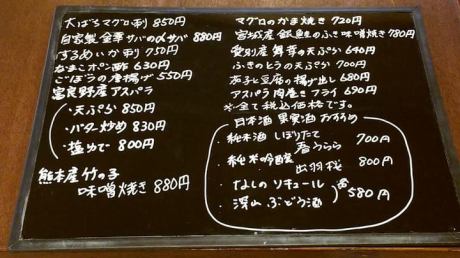 大ばちマグロ刺 850円
自家製 金華サバの〆サバ 880円
するめいか刺 750円
なまこポン酢 630円
ごぼうの唐揚げ 550円
富良野産アスパラ
・天ぷら 850円
・バター炒め 830円
・塩ゆで 800円
熊本産 竹の子
味噌焼き 880円
マグロのかま焼き 720円
宮城産 銀鮭のふき味噌焼き 780円
愛別産 舞茸の天ぷら 640円
ふきのとうの天ぷら 700円
茄子と豆腐の揚げ出し 680円
アスパラ肉巻きフライ 690円
※全て税込価格です。
日本酒 果実酒 おすすめ
・純米酒 しぼりたて
春うらら 700円
・純米吟醸
出羽桜 800円
・なしのリキュール
・深山ぶどう酒 各580円